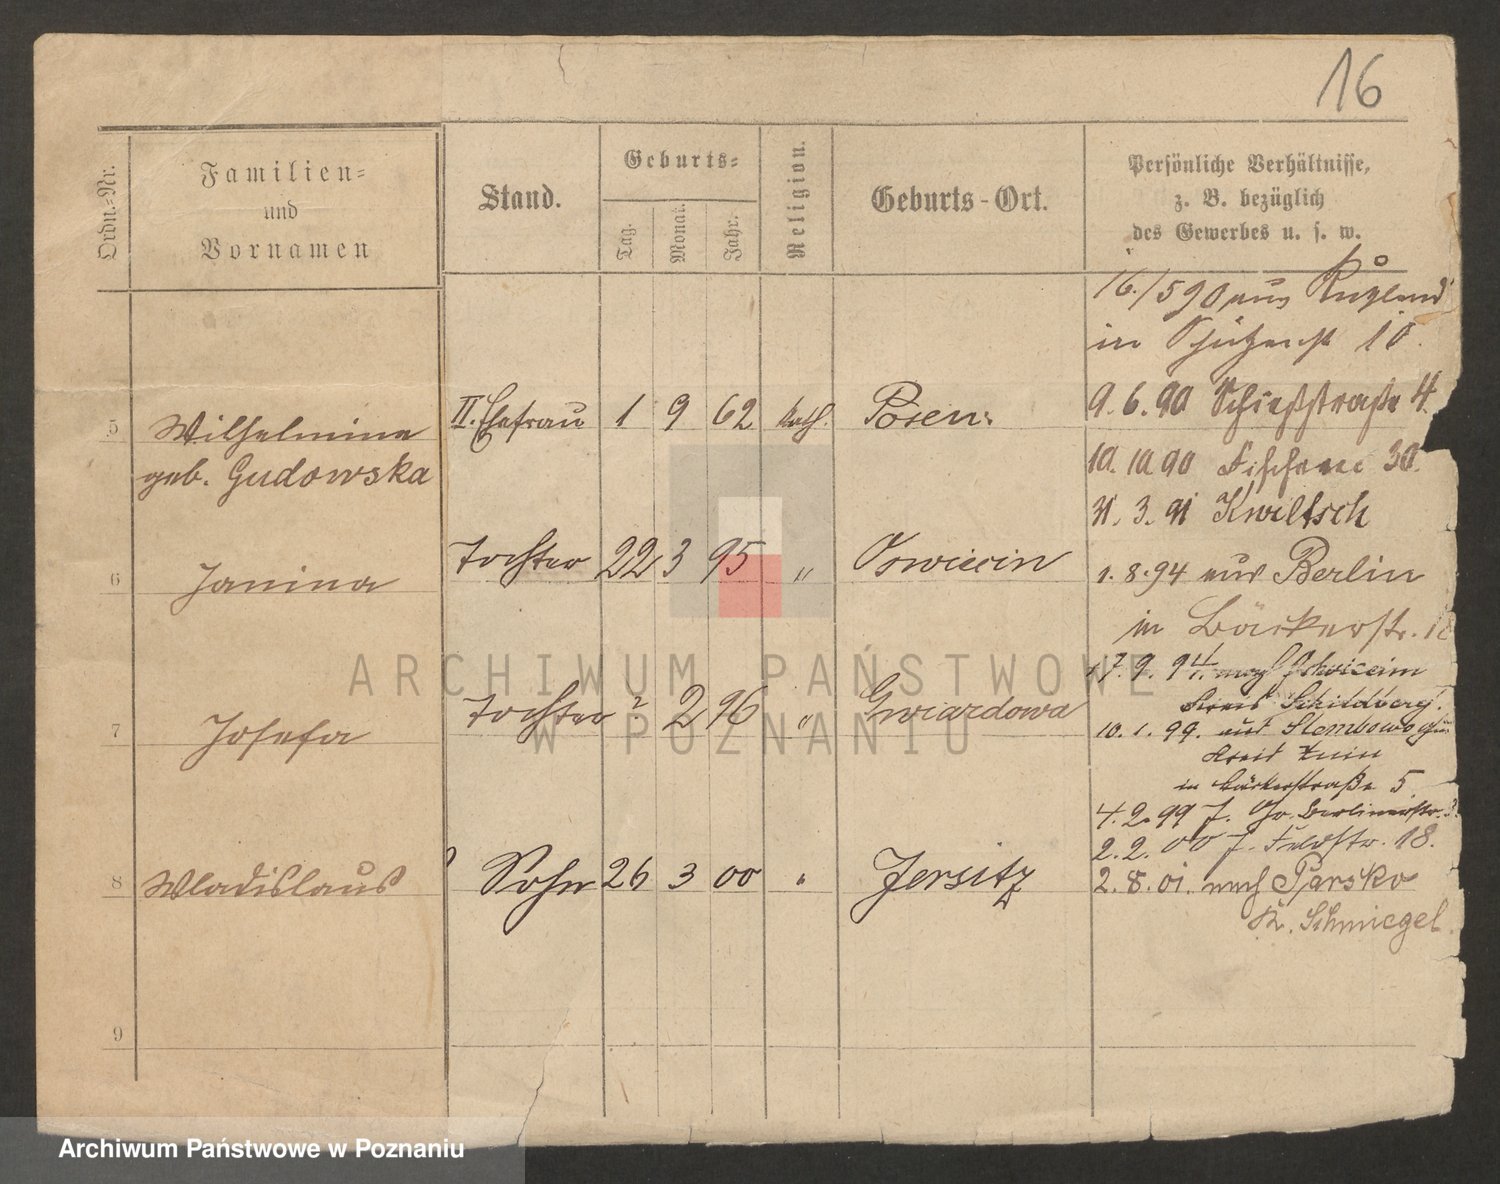 16
Ordn.-Nr.
Familien-
und
Vornamen
Stand.
Geburts-
Tag.
Monat.
Jahr.
Religion.
Geburts-Ort.
Persönliche Verhältnisse,
z. B. bezüglich
des Gewerbes u. s. w.
16./5 90 aus
in 10.
5 Wilhelmine II. Ehefrau 1 9 62 kath. Posen. 9. 6. 90 Schießstraße 4.
geb. Gudowska
10. 10 90 30.
31. 3. 91 Kwiltsch
6 Janina Tochter 22 3 95 " 1. 8. 94 aus Berlin
in Bäckerstr. 18
17. 9. 94. nach
Kreis Schildberg.
7 Josefa Tochter ? 2 96 " Gwiazdowo 10. 1. 99. aus
Kreis Znin
in Bäckerstraße 5.
4. 2. 99 Berlinerstr.
2. 2. 00 Feldstr. 18.
8 Wladislaus Sohn 26 3 00 " Jersitz 2. 8. 01. nach Parsko
K. Schmiegel
9
ARCHIWUM PAŃSTWOWE
W POZNANIU
Archiwum Państwowe w Poznaniu